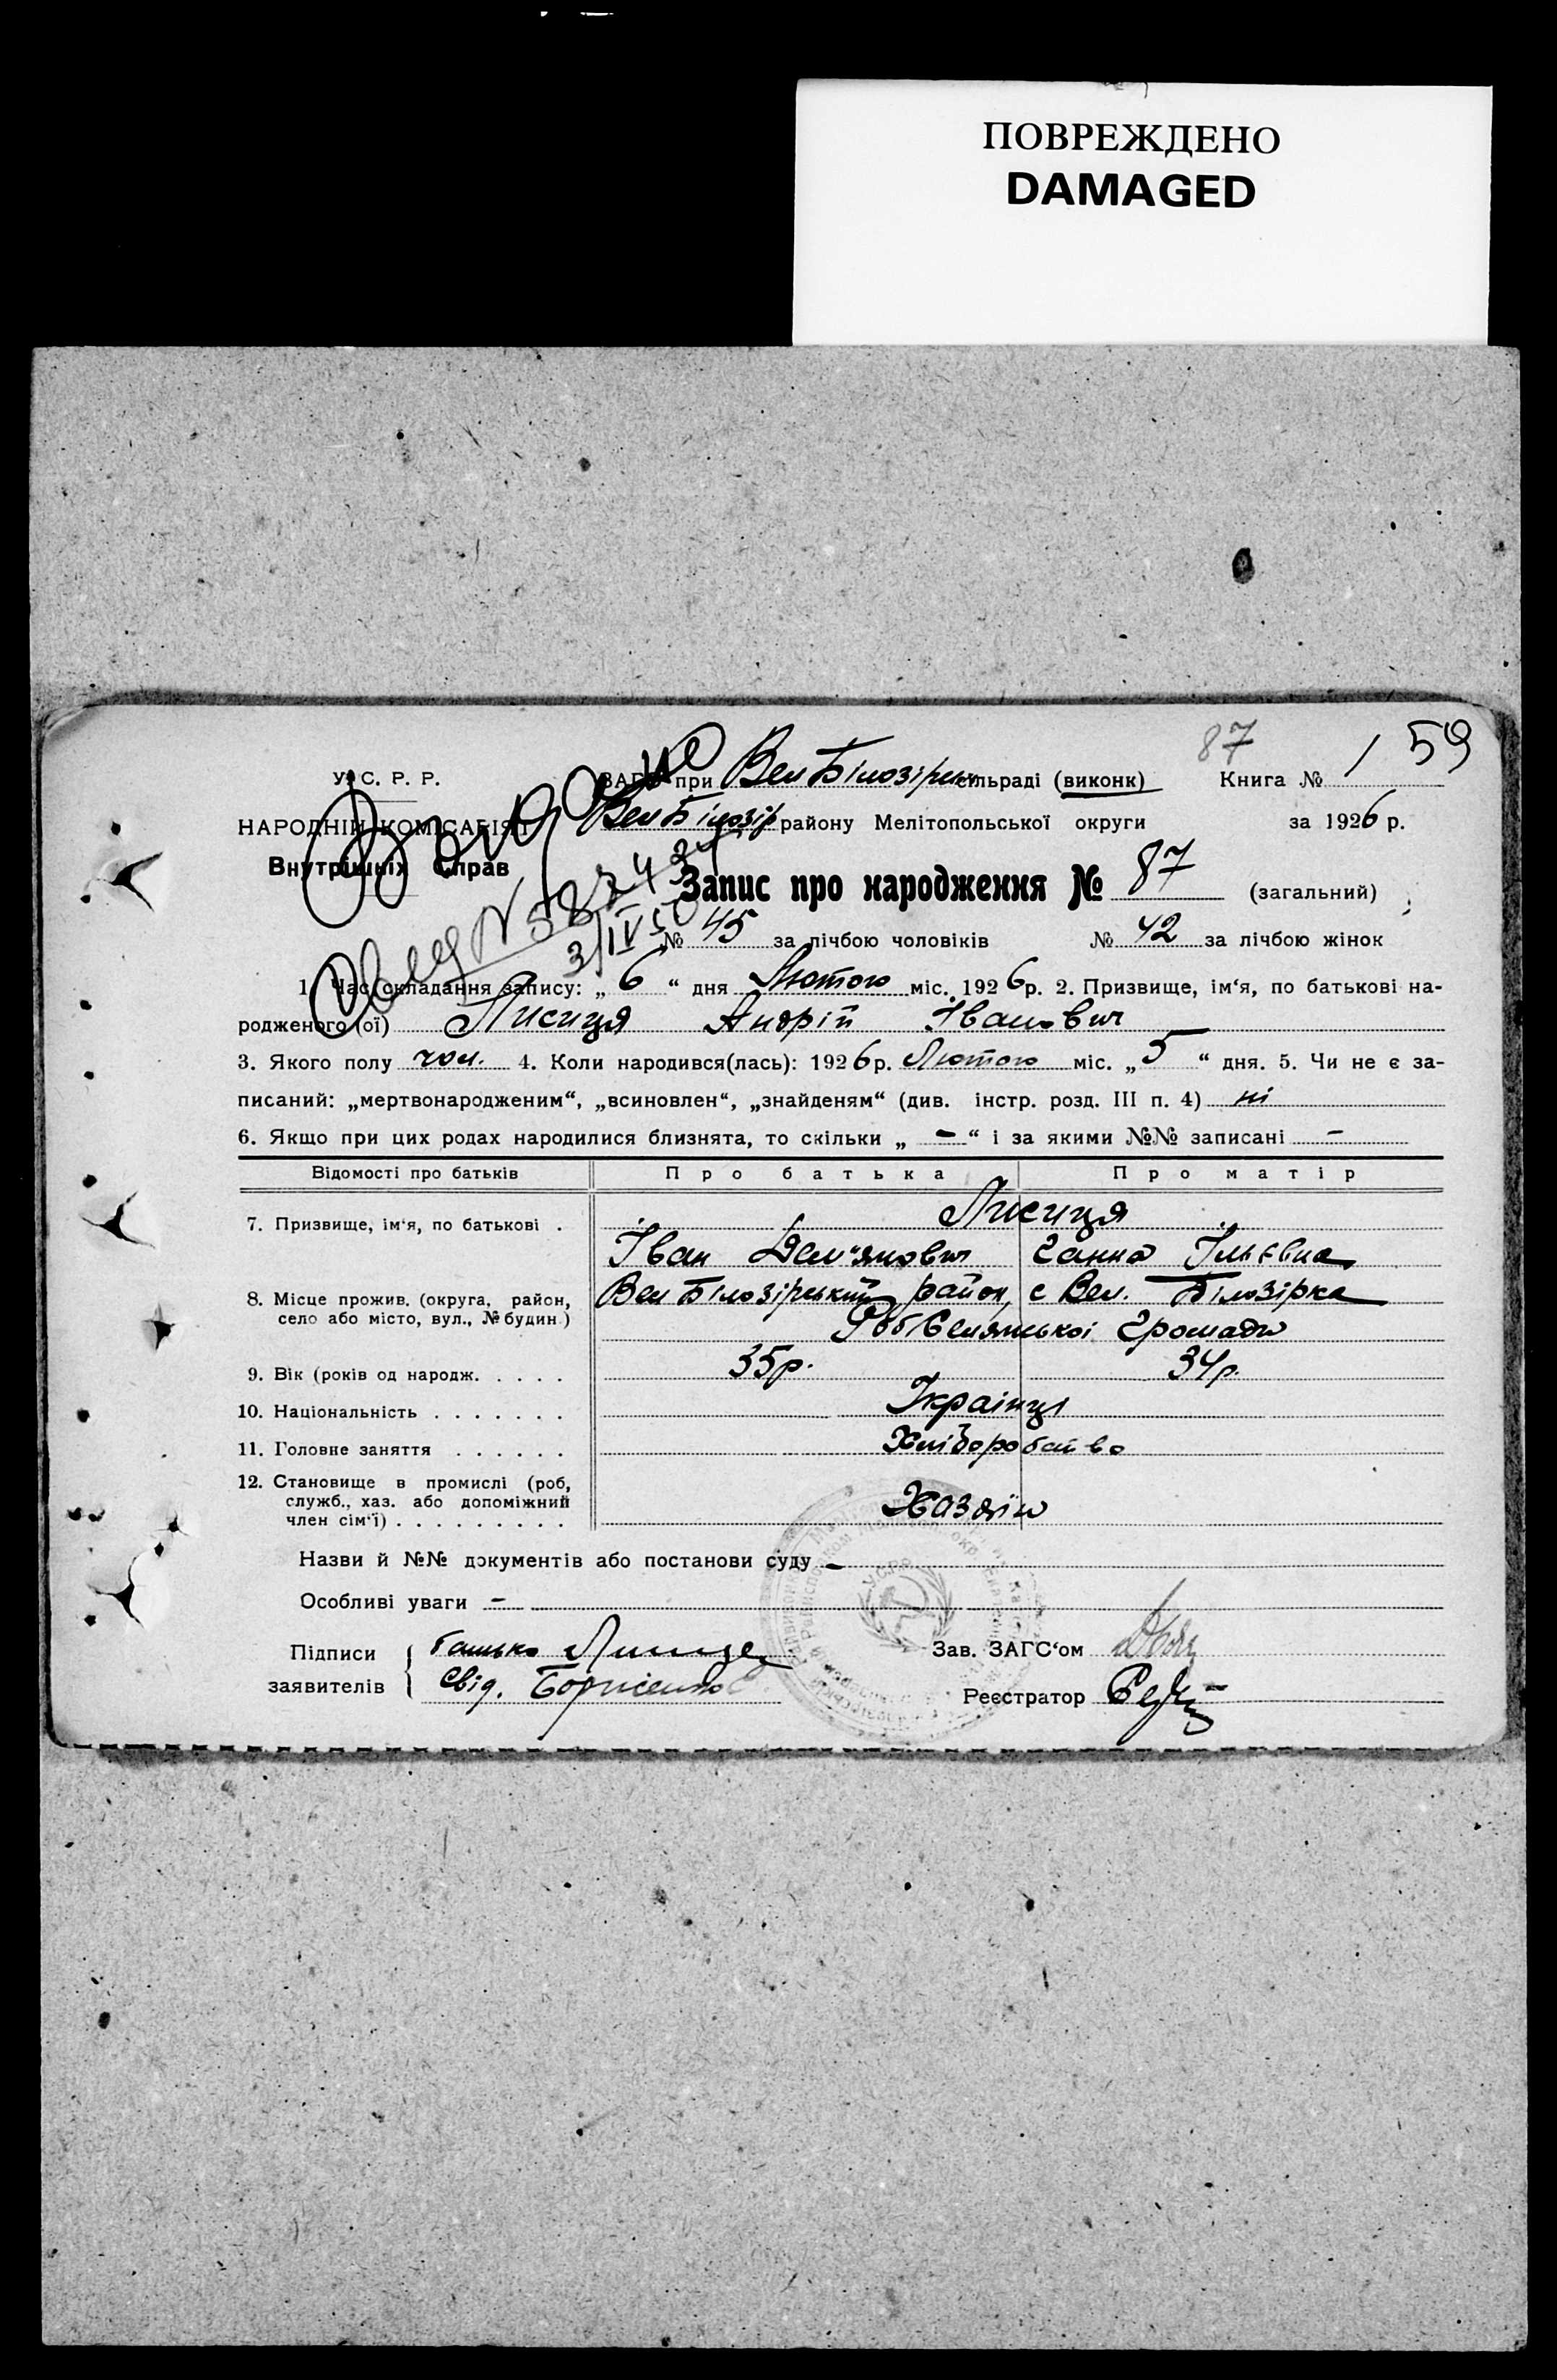 ПОВРЕЖДЕНО
DAMAGED
87
59
У. С. Р. Р.
ЗАГС при Вел Білозірськ сільраді (виконк) Книга № 1
НАРОДНІЙ КОМІСАРІЯТ Вел Білозір району Мелітопольської округи за 1926 р.
Внутрішніх Справ
Запис про народження № 87 (загальний)
3/IV
№ 45 за лічбою чоловіків № 42 за лічбою жінок
1. Час складання запису: „ 6 “ дня Лютого міс. 1926 р. 2. Призвище, ім‘я, по батькові на-
родженого (ої) Лисиця Андрій Іванович
3. Якого полу чол. 4. Коли народився(лась): 1926 р. Лютого міс. „ 5 “ дня. 5. Чи не є за-
писаний: „мертвонародженим“, „всиновлен“, „знайденям“ (див. інстр. розд. III п. 4) ні
6. Якщо при цих родах народилися близнята, то скільки „ - “ і за якими №№ записані -
Відомості про батьків Про батька Про матір
7. Призвище, ім‘я, по батькові . Лисиця
Іван Дем‘янович Ганна Ільєвна
8. Місце прожив. (округа, район, село або місто, вул., № будин.) Вел Білозірський район, с Вел. Білозірка
Роб Селянської Громади
9. Вік (років од народж. . . . . 35р. 34р.
10. Національність . . . . . . . Українці
11. Головне заняття . . . . . . Хліборобство
12. Становище в промислі (роб,
служб., хаз. або допоміжний
член сім‘ї) . . . . . . . . . Хазяїн
Назви й №№ документів або постанови суду -
Особливі уваги -
Підписи батько Лисиця Зав. ЗАГС‘ом
заявителів Свід. Борисенко Реєстратор